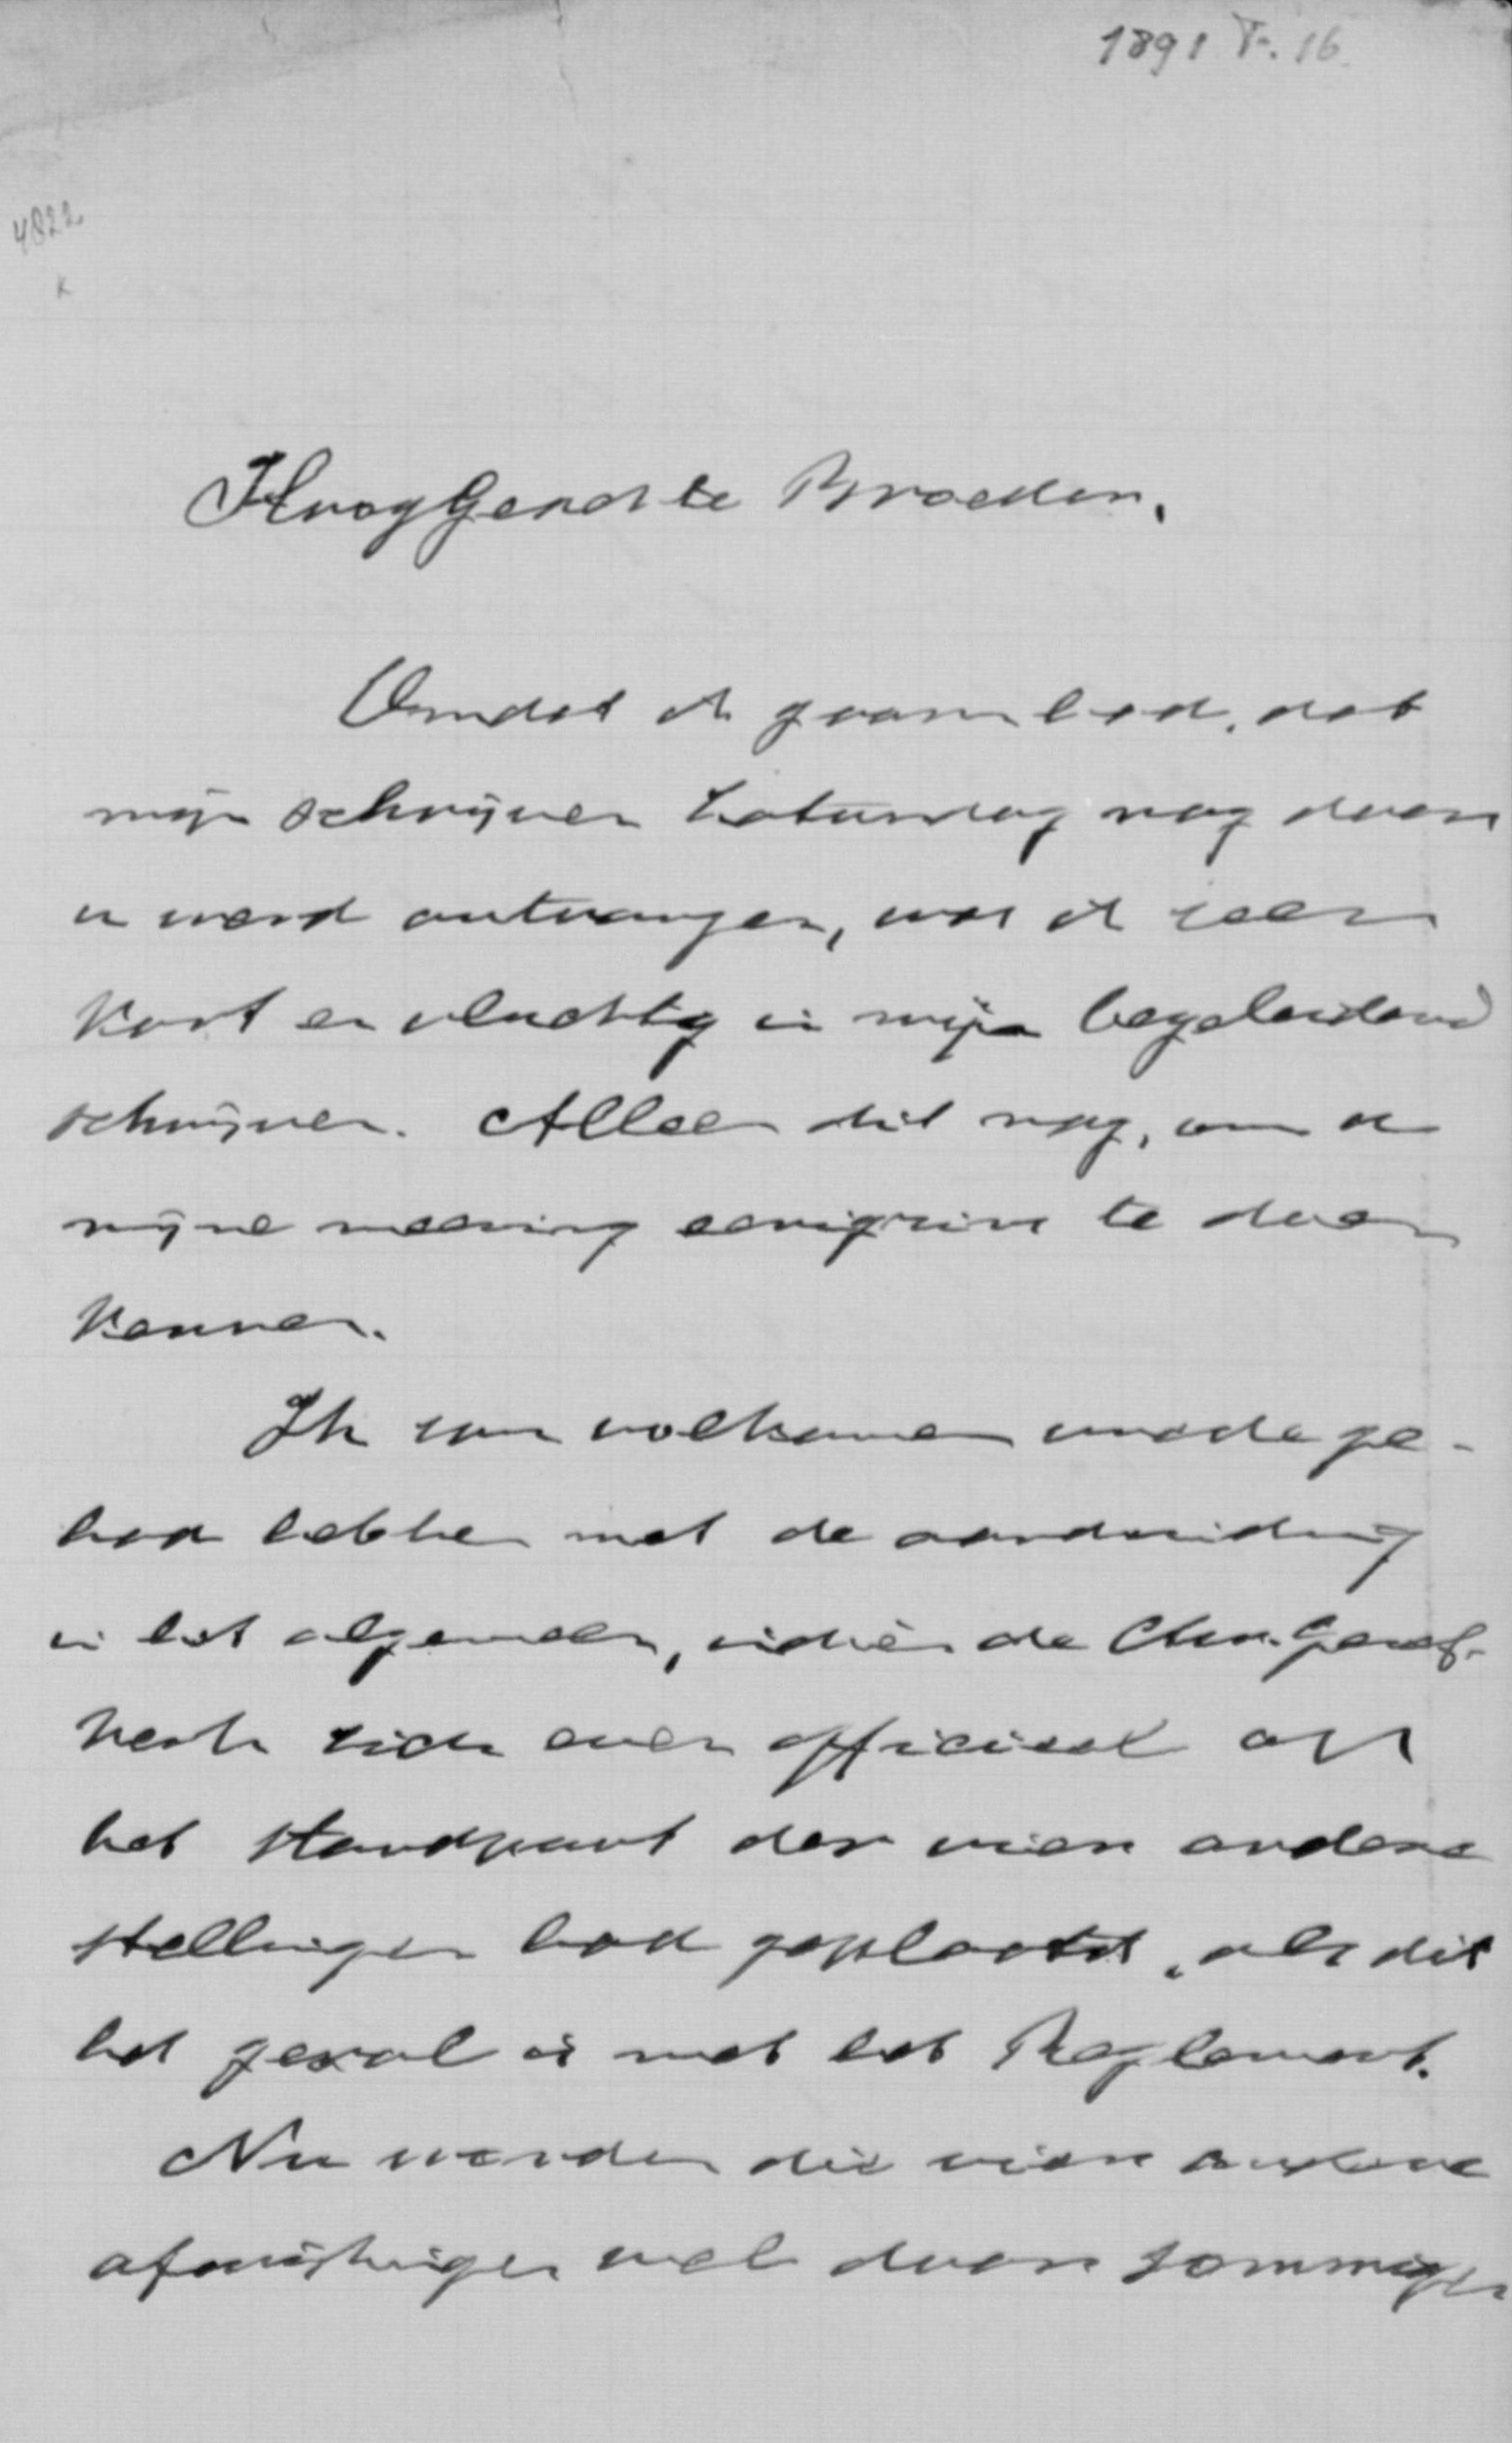 1891 V. 16
4822
K
HoogGeachte Broeder,
Omdat ik gaarne had, dat
mijn schrijven Zaturdag nog door
u werd ontvangen, was ik zeer
kort en vluchtig in mijn begeleidend
schrijven. Alleen dit nog, om u
mijne meening eenigzins te doen
kennen.
Ik zou volkomen vrede ge-
had hebben met de aanduiding
in het algemeen, indien de Chr. Geref.
Kerk zich even officieel op
het standpunt der vier andere
stellingen had geplaatst, als dit
het geval is met het Reglement.
Nu worden die vier andere
afwijkingen wel door sommigen